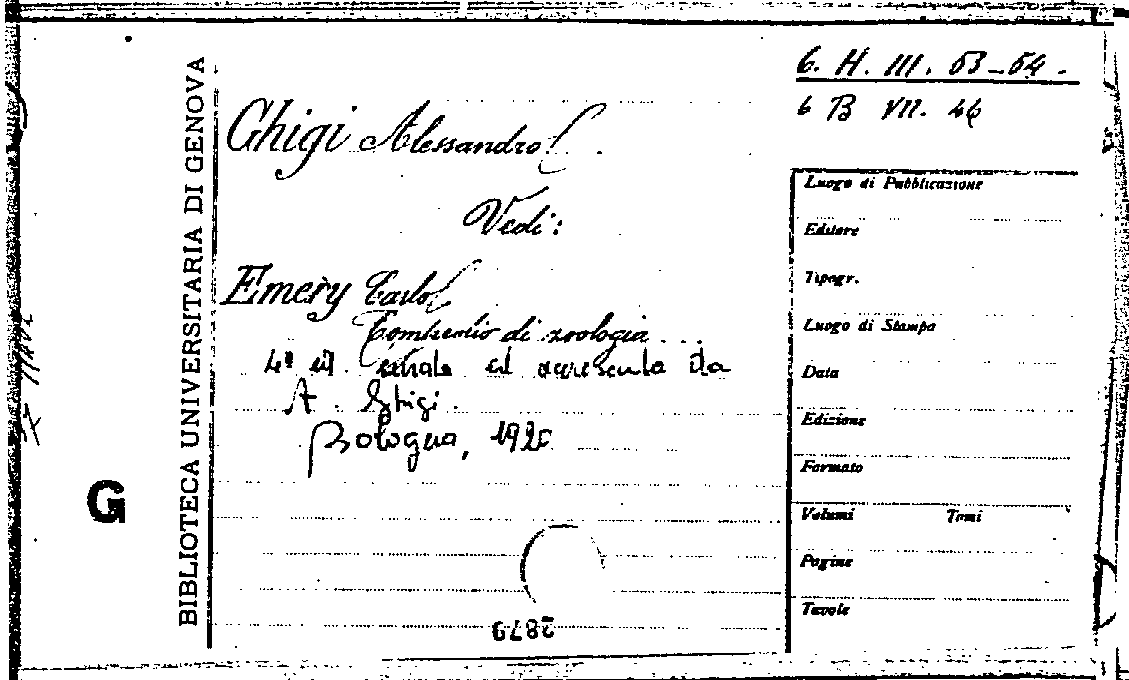 6. H. III. 53-54.
6 B VII. 46
BIBLIOTECA UNIVERSITARIA DI GENOVA
G
Ghigi Alessandro
Vedi:
Emery Carlo
Compendio di zoologia...
4ª ed. curata ed accresciuta da
A. Ghigi.
Bologna, 1920
Luogo di Pubblicazione
Editore
Tipogr.
Luogo di Stampa
Data
Edizione
Formato
Volumi Tomi
Pagine
Tavole